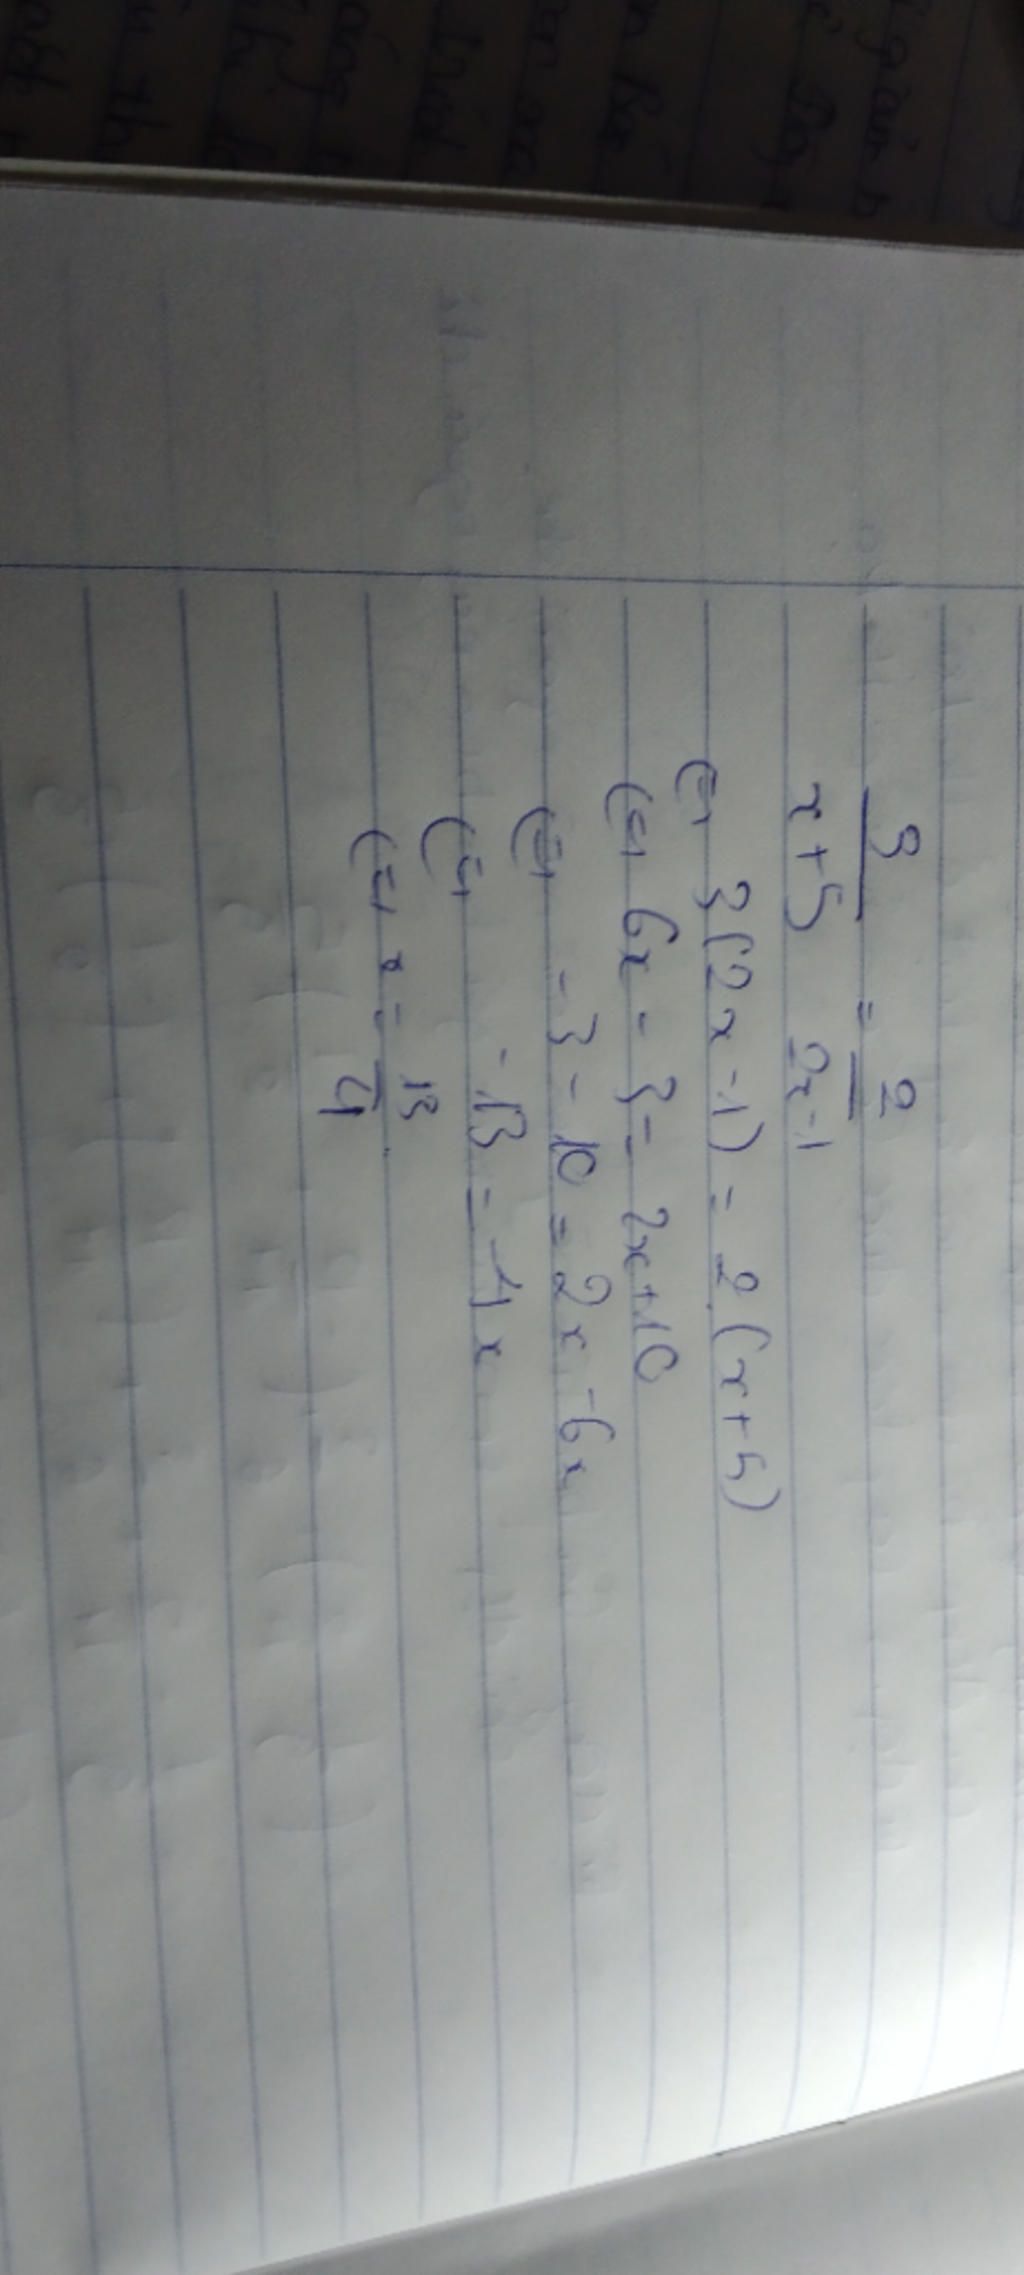 3/(x+5) = 2/(2x-1)
(=) 3(2x-1) = 2(x+5)
(=) 6x - 3 = 2x+10
(=) -3 - 10 = 2x - 6x
(=) -13 = -4x
(=) x = 13/4